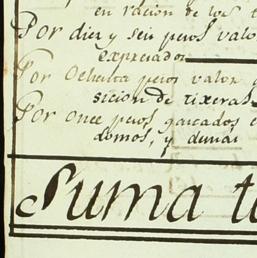 en racion de los
Por diez y seis pesos valo
expresador
Por Ochenta pesos valor
sicion de tixeras
Por once pesos gascados
domos, y demas
Suma t